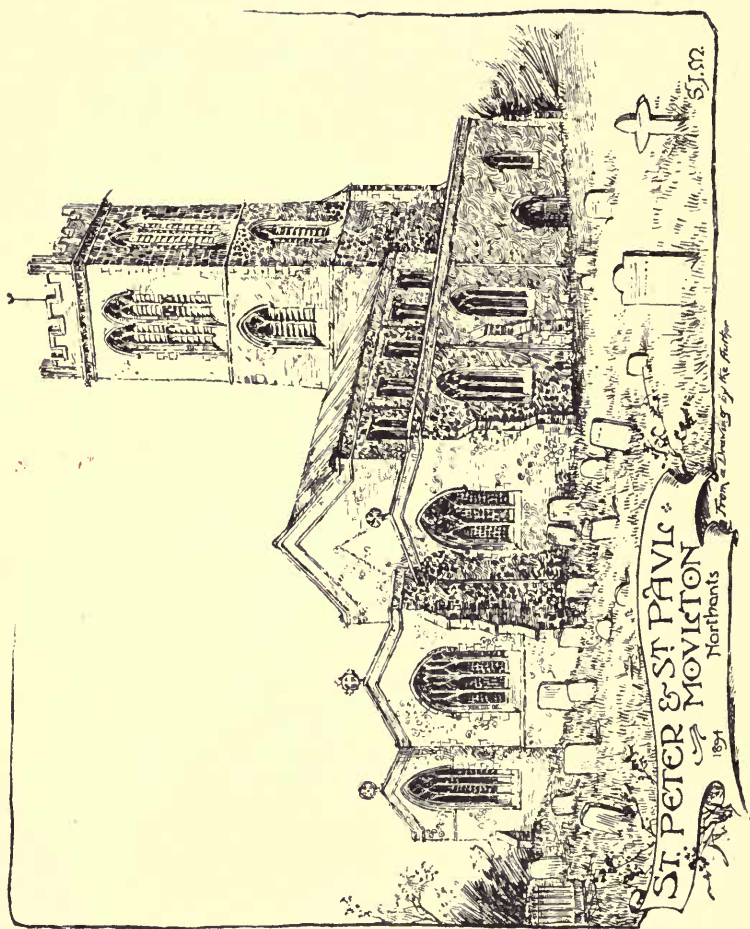 ST. PETER & ST. PAVL
MOVLTON
Northants
1894
From a Drawing by the Author
S.J.M.